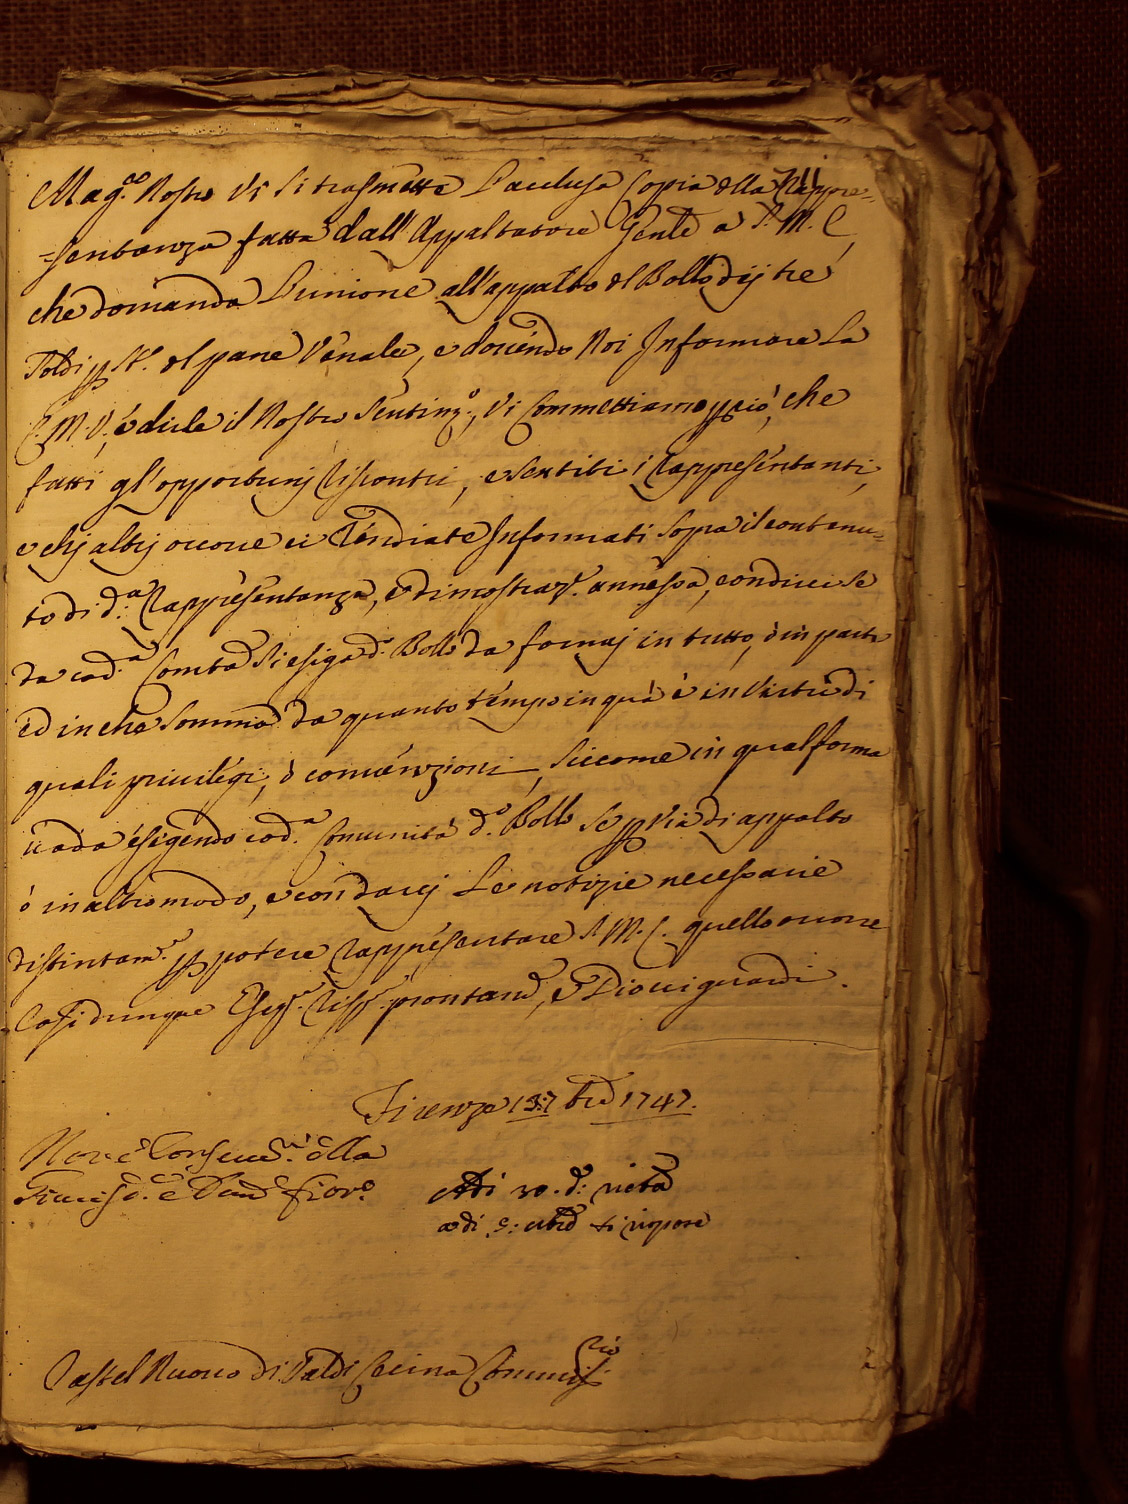 Mag.co Nostro Vi si trasmette l'acclusa Copia della Rappre=
=sentanza fatta dall'Appaltatore Gen.le a S. M. C,
che domanda l'unione all'appalto del Bollo dij tre
Soldi p St. del pane Venale, e dovendo Noi Informare la
C. M. S., e dirle il Nostro Sentim.o, Vi Commettiamo p ciò, che
fatti gl'opportunj Riscontri, e sentiti i Rappresentanti,
e chj altrj occorre ci Rendiate Informati sopra il contenu=
to di d.a Rappresentanza, e dimostraz.e annessa, con dirci se
da cod.a Com.tà si esiga d.o Bollo da fornaj in tutto, ò in parte
ed in che somma da quanto tempo in quà è in Virtù di
quali privilegi, ò convenzioni, siccome in qual forma
vada esigendo cod.a Comunità d.o Bollo se p via di appalto
ò in altro modo, e con darcj le notizie necessarie
distintam.e p potere Rappresentare S. M. C. quello occorre
Così dunque Eseg.e Riff.e prontam.e, e Dio vi guardi.
Firenze 13: 7bre 1747.
Nov.e Conserv.ri della
Giurisd.e e Dom.o fior.o
Adi 30. d.o ricta
adi 5: ottbre si rispose
Castel Nuovo di Val di Cecina Commiss.rio